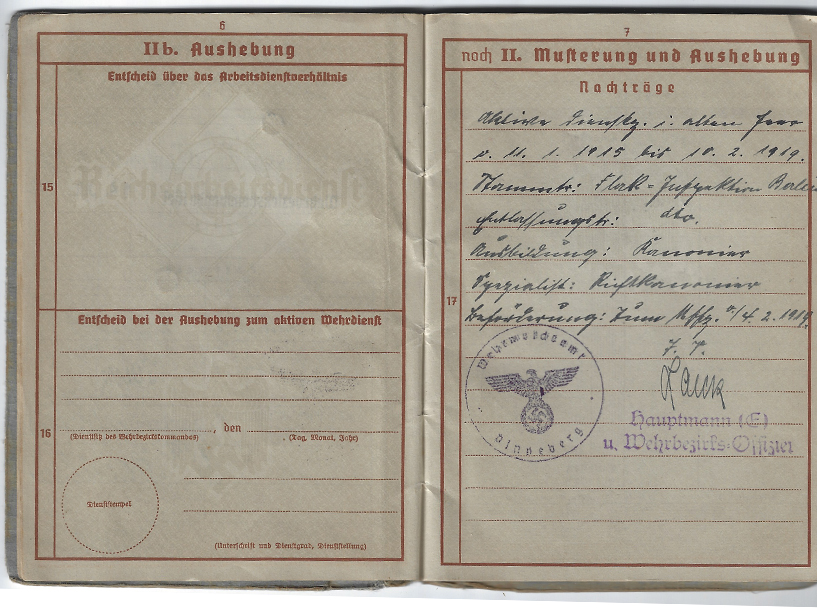 6
II b. Aushebung
Entscheid über das Arbeitsdienstverhältnis
15
Reichsarbeitsdienst
Entscheid bei der Aushebung zum aktiven Wehrdienst
16
, den
(Dienstsitz des Wehrbezirkskommandos) (Tag, Monat, Jahr)
Dienststempel
(Unterschrift und Dienstgrad, Dienststellung)
7
noch II. Musterung und Aushebung
Nachträge
17
Aktive Dienstz. i. alten Heer
v. 11. 1. 1915 bis 10. 2. 1919.
Stammtr: Flak-Inspektion Berlin
Entlassungstr: dto.
Ausbildung: Kanonier
Spezialist: Richtkanonier
Beförderung: Zum Uffz. 4. 2. 1919.
Wehrmeldeamt
Pinneberg
Hauptmann (E)
u. Wehrbezirks-Offizier